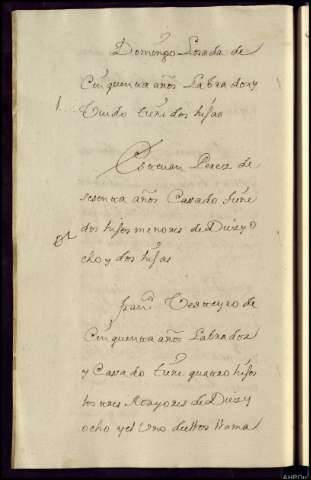 Domingo Losada de
Cinquenta años Labrador y
1 Viudo tiene dos hijas
Esteuan Perez de
sesenta años Casado tiene
dos hijos menores de Diez y
ocho y dos hijas
Fran.co de
Cinquenta años Labrador
y Casado tiene quatro hijos
los tres Mayores de Diez y
ocho y el Uno dellos llama
AHPOu